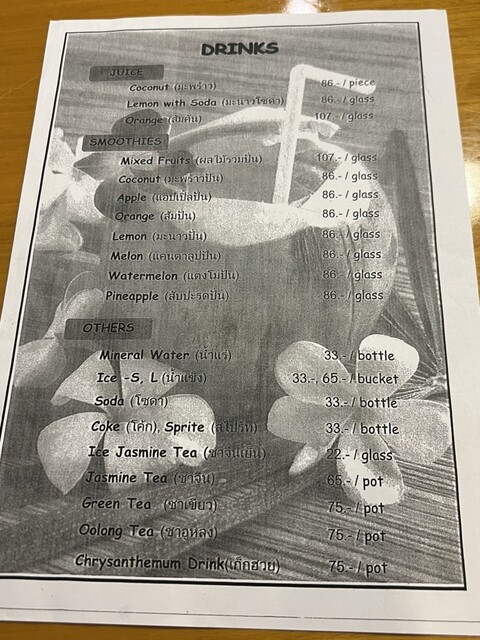 DRINKS
JUICE
Coconut (มะพร้าว) 86.- / piece
Lemon with Soda (มะนาวโซดา) 86.- / glass
Orange (ส้มคั้น) 107.- / glass
SMOOTHIES
Mixed Fruits (ผลไม้รวมปั่น) 107.- / glass
Coconut (มะพร้าวปั่น) 86.- / glass
Apple (แอปเปิ้ลปั่น) 86.- / glass
Orange (ส้มปั่น) 86.- / glass
Lemon (มะนาวปั่น) 86.- / glass
Melon (แคนตาลูปปั่น) 86.- / glass
Watermelon (แตงโมปั่น) 86.- / glass
Pineapple (สับปะรดปั่น) 86.- / glass
OTHERS
Mineral Water (น้ำแร่) 33.- / bottle
Ice -S, L (น้ำแข็ง) 33.-, 65.- / bucket
Soda (โซดา) 33.- / bottle
Coke (โค้ก), Sprite (สไปร์ท) 33.- / bottle
Ice Jasmine Tea (ชาจีนเย็น) 22.- / glass
Jasmine Tea (ชาจีน) 65.- / pot
Green Tea (ชาเขียว) 75.- / pot
Oolong Tea (ชาอูหลง) 75.- / pot
Chrysanthemum Drink(เก็กฮวย) 75.- / pot